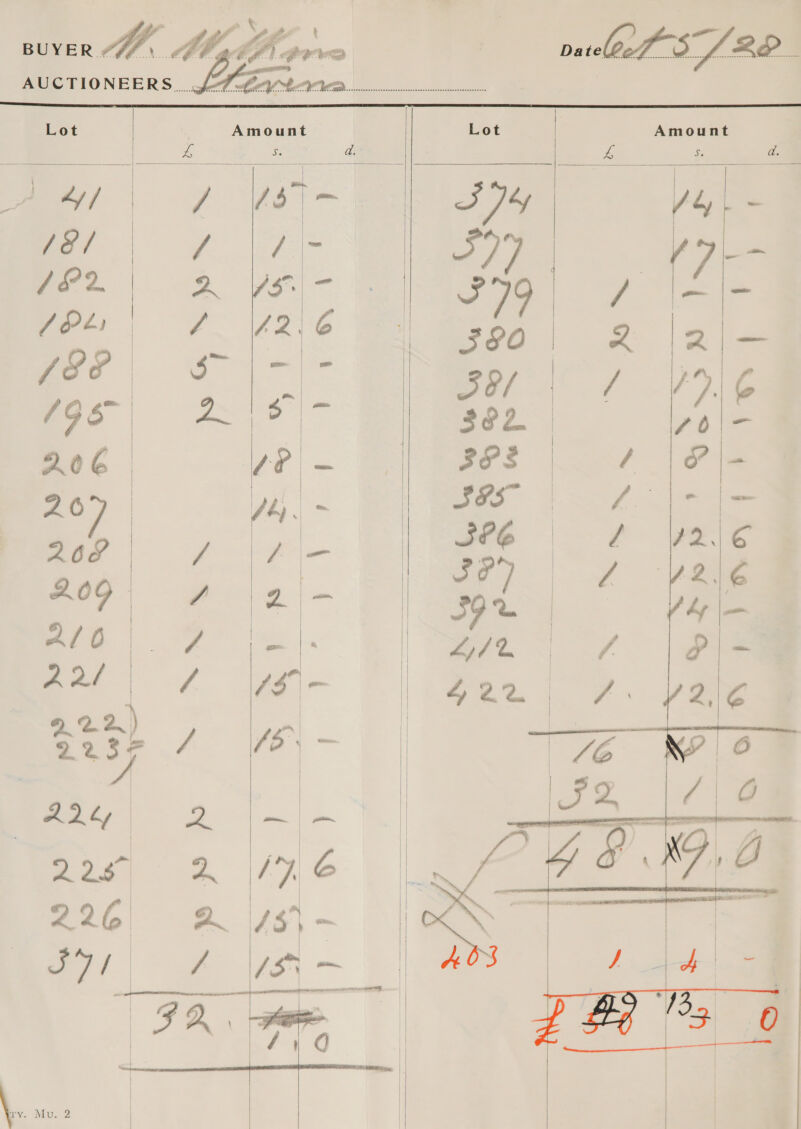 BUYER W. Watkins Date Oct 5/28
AUCTIONEERS Stevens
Lot Amount
£ s. d.
41 1 15 -
181 1 1 -
182 2 15 -
184 1 12 6
188 5 - -
195 2 5 -
206 18 -
207 14 -
208 1 1 -
209 1 2 -
210 1 - -
221 1 15 -
222)
223 1 15 -
224 2 - -
225 2 17 6
226 2 15 -
371 1 15 -
32 1 0
Lot Amount
£ s. d.
374 14 -
377 17 - -
379 1 - -
380 2 2 -
381 1 17 6
382 10 -
383 1 8 -
385 1 - -
386 1 12 6
387 1 12 6
392 14 -
412 1 8 -
422 1 12 6
16 8 0
32 1 0
£ 48 9 0
403 1 4 -
£ 49 13 0
Mu. 2